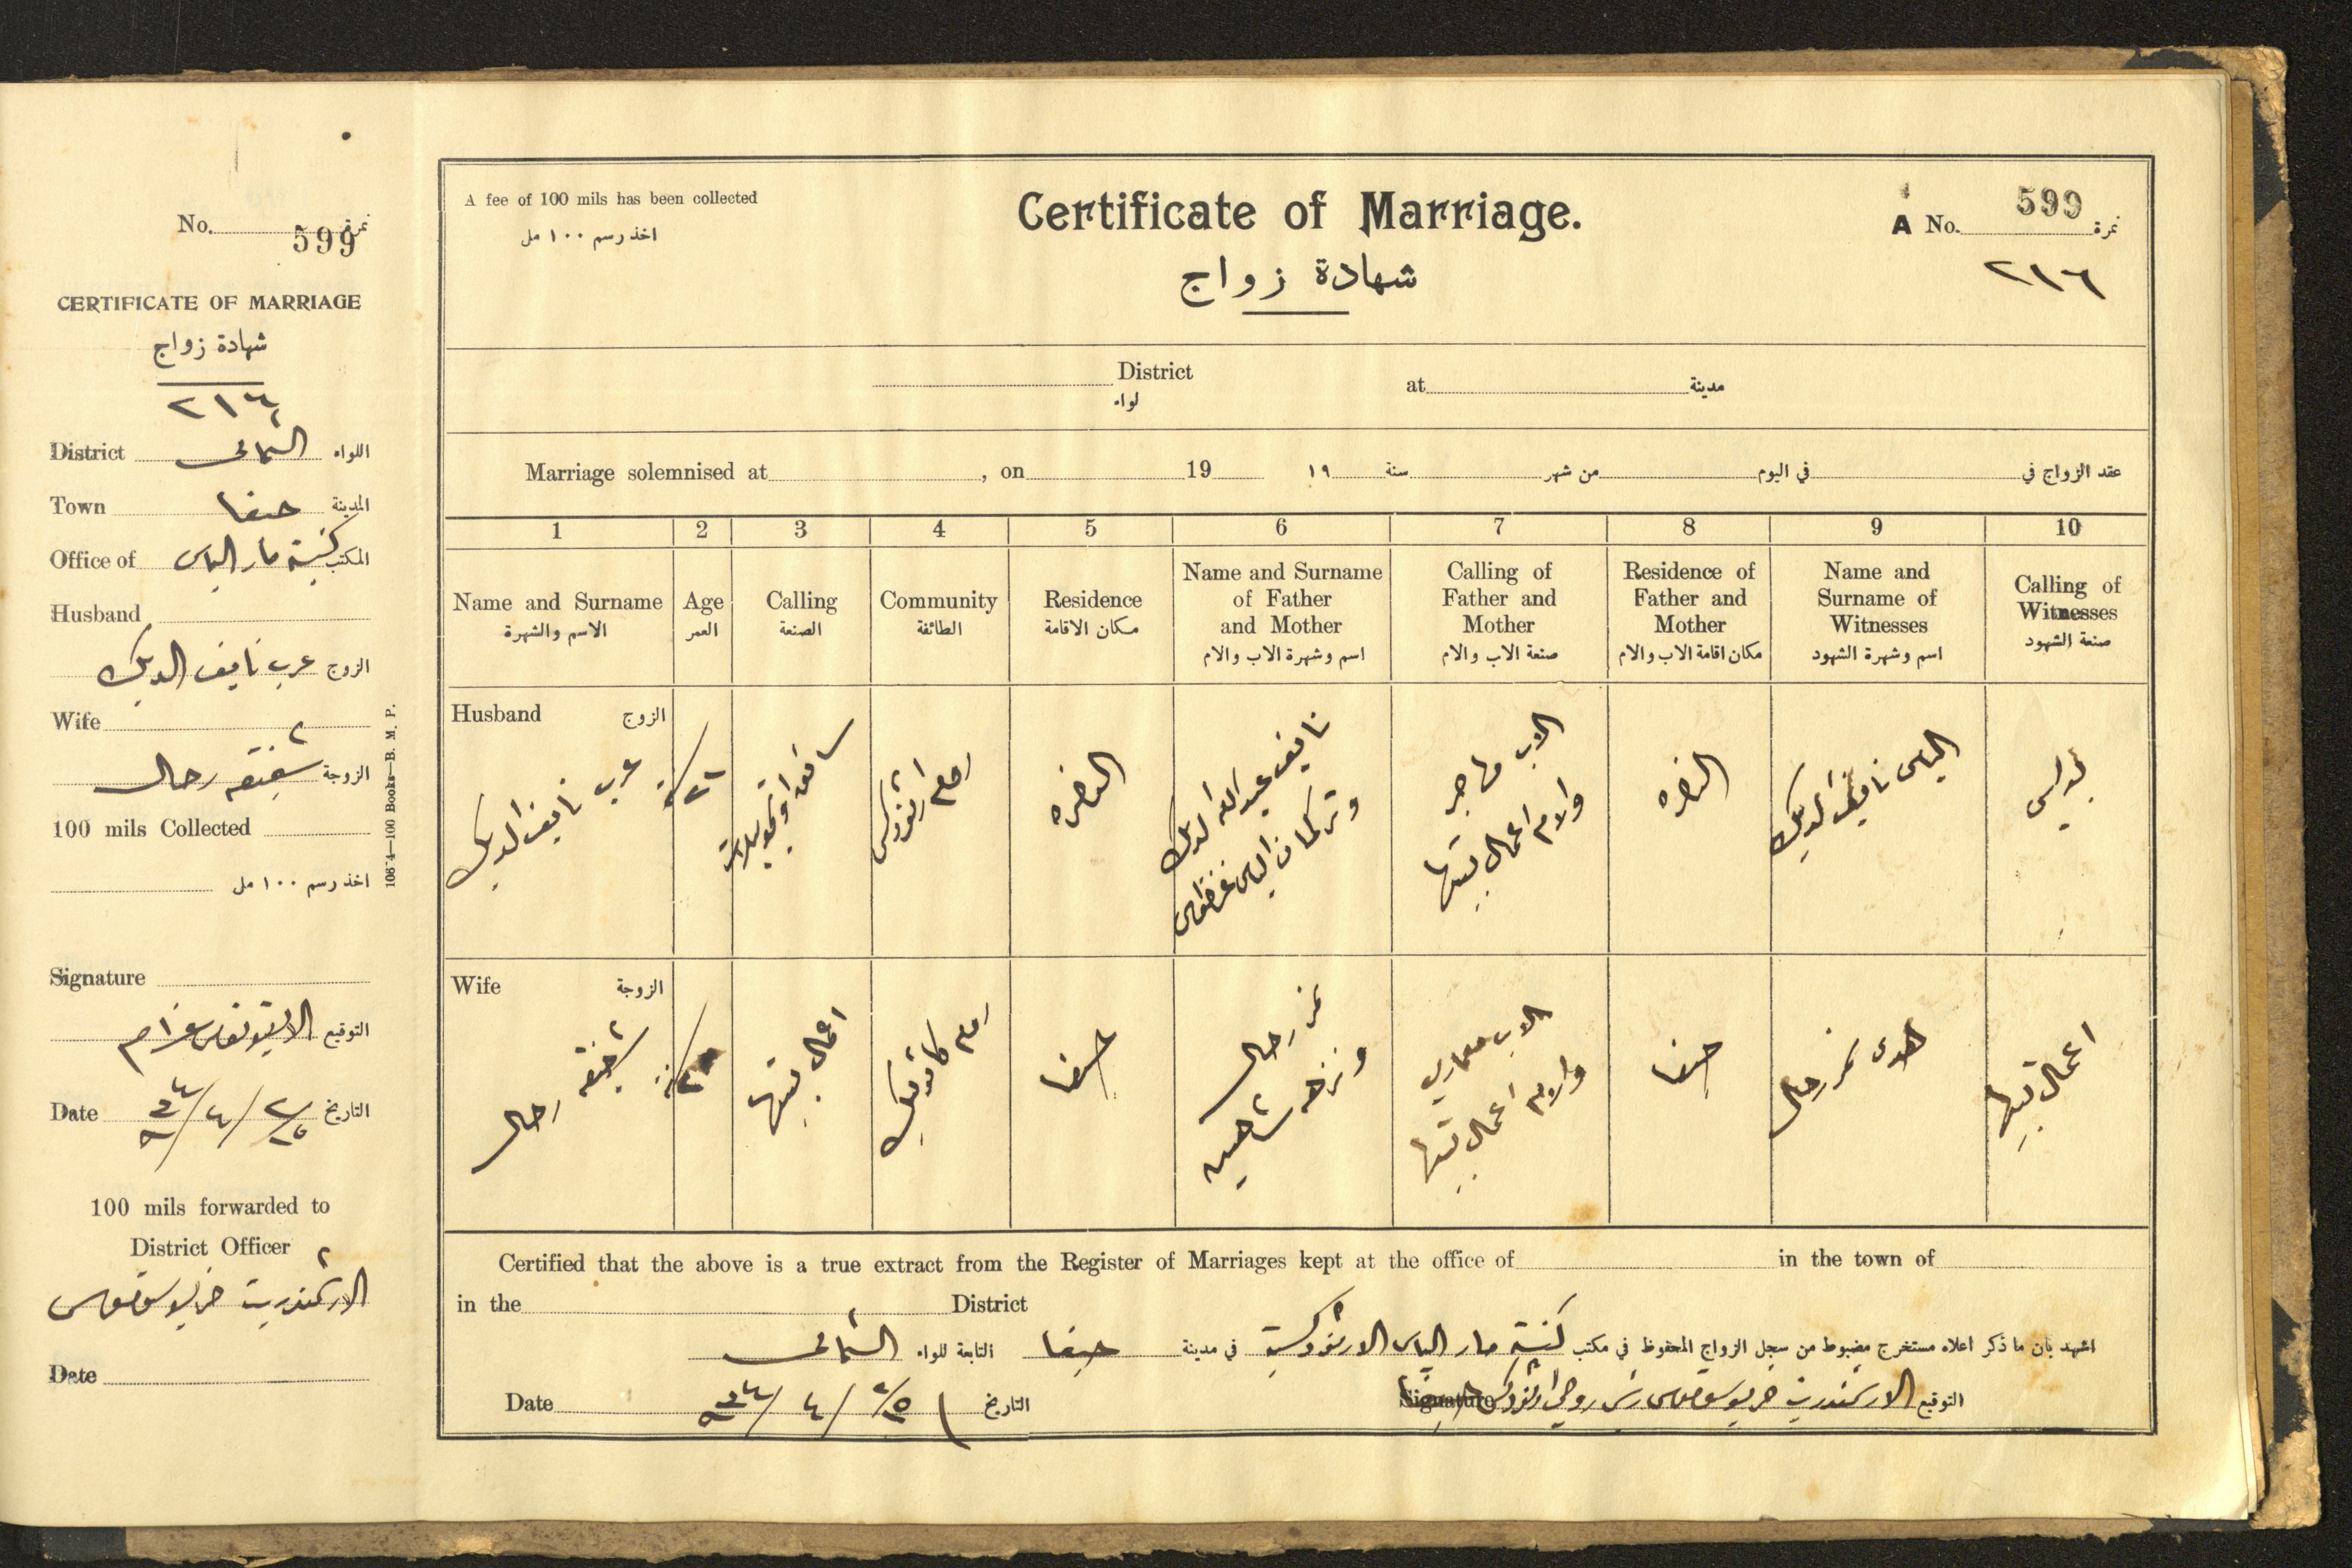 No. 599 نمرة
CERTIFICATE OF MARRIAGE
شهادة زواج
٢١٦
District الشمالي اللواء
Town حيفا المدينة
Office of كنيسة مار الياس المكتب
Husband
عرب نايف الديك الزوج
Wife
شفيقه رحال الزوجة
100 mils Collected
اخذ رسم ١٠٠ مل
Signature
التوقيع
Date التاريخ
100 mils forwarded to
District Officer
الارشمندريت
Date
10674—100 Books—B. M. P.
A fee of 100 mils has been collected
اخذ رسم ١٠٠ مل
Certificate of Marriage.
شهادة زواج
A No. 599 نمرة
٢١٦
District at مدينة
لواء
Marriage solemnised at , on 19 عقد الزواج في في اليوم من شهر سنة ١٩
1 2 3 4 5 6 7 8 9 10
Name and Surname الاسم والشهرة
Age العمر
Calling الصنعة
Community الطائفة
Residence مكان الاقامة
Name and Surname of Father and Mother اسم وشهرة الاب والام
Calling of Father and Mother صنعة الاب والام
Residence of Father and Mother مكان اقامة الاب والام
Name and Surname of Witnesses اسم وشهرة الشهود
Calling of Witnesses صنعة الشهود
Husband الزوج
عرب نايف الديك
سائق اوتوموبيلات
روم ارثوذكس
الناصره
نايف عبدالله الديك
وتركمان الياس
الاب مهاجر
والام اعمال بيتها
الناصره
الياس نايف الديك
بوليس
Wife الزوجة
شفيقه رحال
اعمال بيتها
روم كاثوليك
حيفا
نمر رحال
ونزهه شاهين
الاب معماري
والام اعمال بيتها
حيفا
نمر رحال
اعمال بيتها
Certified that the above is a true extract from the Register of Marriages kept at the office of in the town of
in the District
اشهد بان ما ذكر اعلاه مستخرج مضبوط من سجل الزواج المحفوظ في مكتب كنيسة مار الياس الارثوذكسية في مدينة حيفا التابعة للواء الشمالي
Date التاريخ
Signature الارشمندريت التوقيع